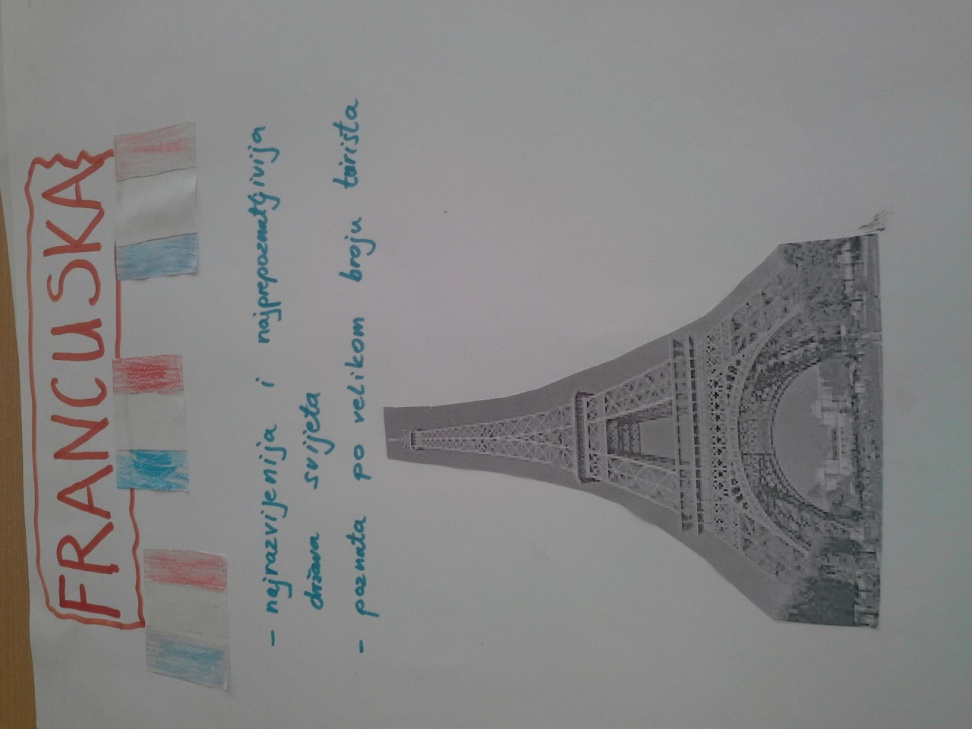 FRANCUSKA
- najrazvijenija i najprepoznatljivija
država svijeta
- poznata po velikom broju turista